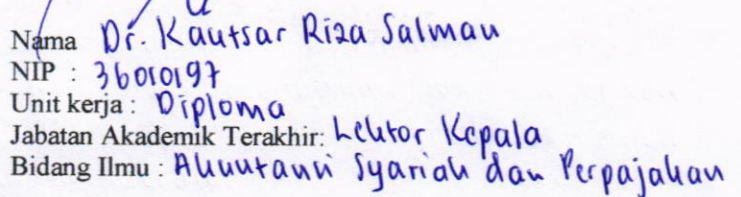 Nama Dr. Kautsar Riza Salman
NIP : 36010197
Unit kerja : Diploma
Jabatan Akademik Terakhir: Lektor Kepala
Bidang Ilmu : Akuntansi Syariah dan Perpajakan